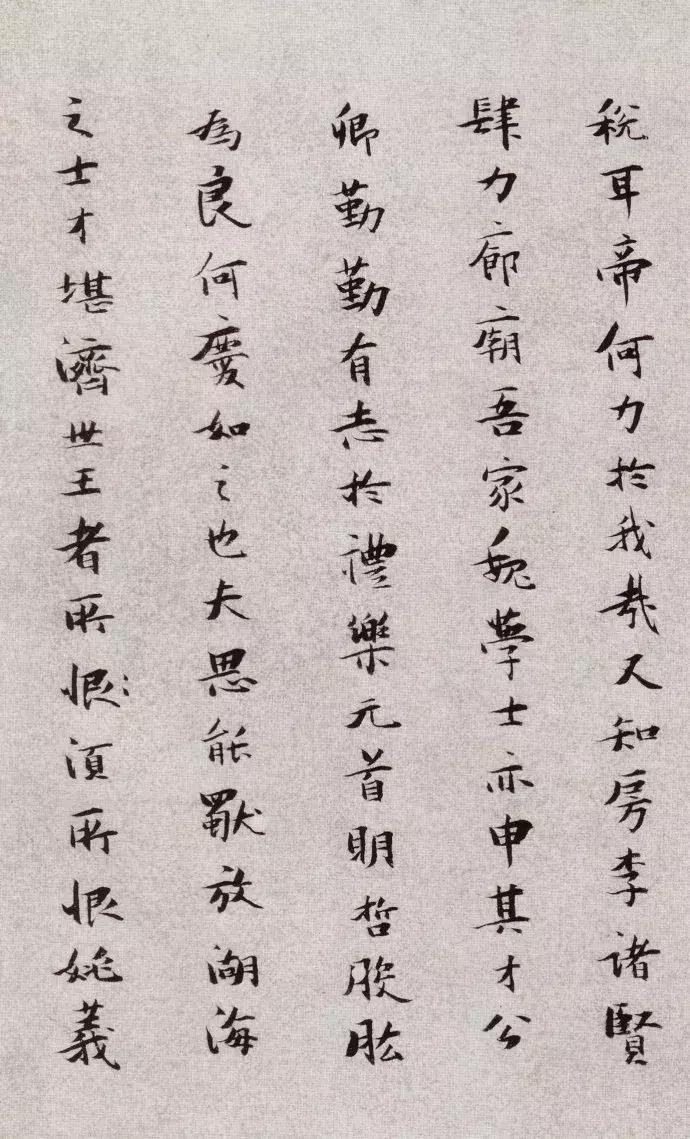 稅耳帝何力於我哉又知房李諸賢
肆力廊廟吾家魏學士亦申其才公
卿勤勤有志於禮樂元首明哲股肱
為良何慶如之也夫思能放湖海
之士才堪濟世王者所恨須所恨姚義